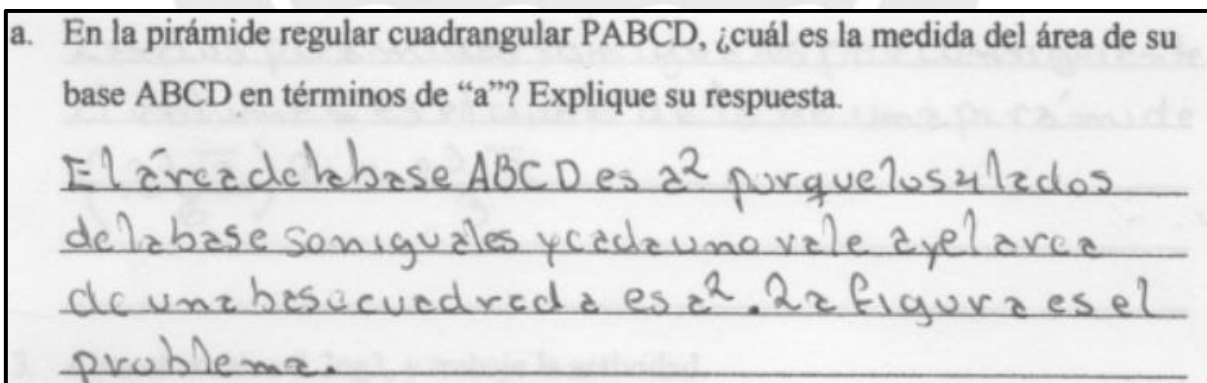 a. En la pirámide regular cuadrangular PABCD, ¿cuál es la medida del área de su
base ABCD en términos de “a”? Explique su respuesta.
El área de la base ABCD es a² porque los 4 lados
de la base son iguales y cada uno vale a y el area
de una base cuadrada es a². La figura es el
problema.